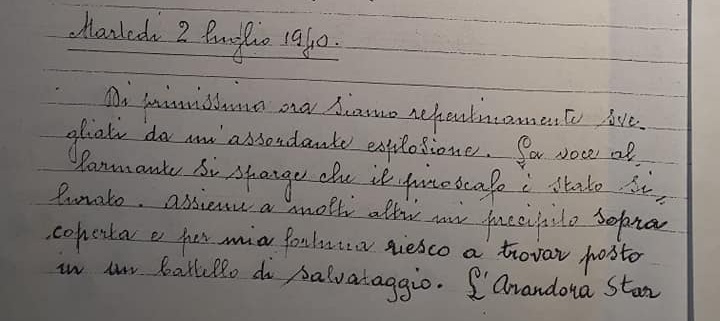 Martedì 2 luglio 1940.
Di primissima ora siamo repentinamente sve-
gliati da un'assordante esplosione. La voce al-
larmante si sparge che il piroscafo è stato si-
lurato. assieme a molti altri mi precipito sopra
coperta e per mia fortuna riesco a trovar posto
in un battello di salvataggio. L'Arandora Star